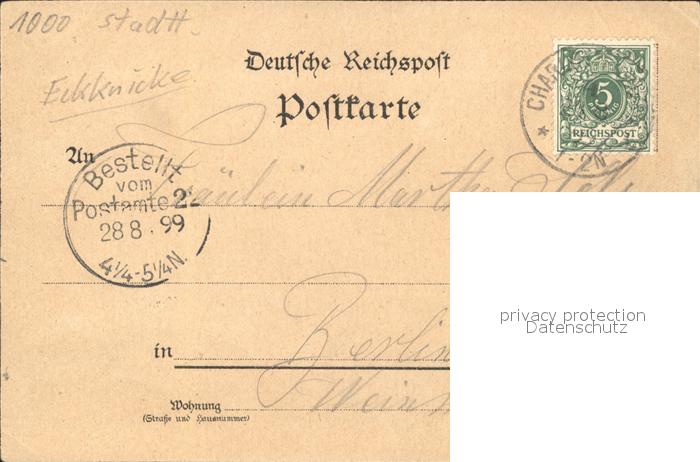 1000 Stadtt.
Eckknicke
Deutsche Reichspost
Postkarte
CHAR
5
REICHSPOST
* 1-2N
An
Fräulein Martha
Bestellt
vom
Postamte 2
28 8. 99
4¼-5¼N.
privacy protection
Datenschutz
in Berlin
Wohnung
(Straße und Hausnummer)